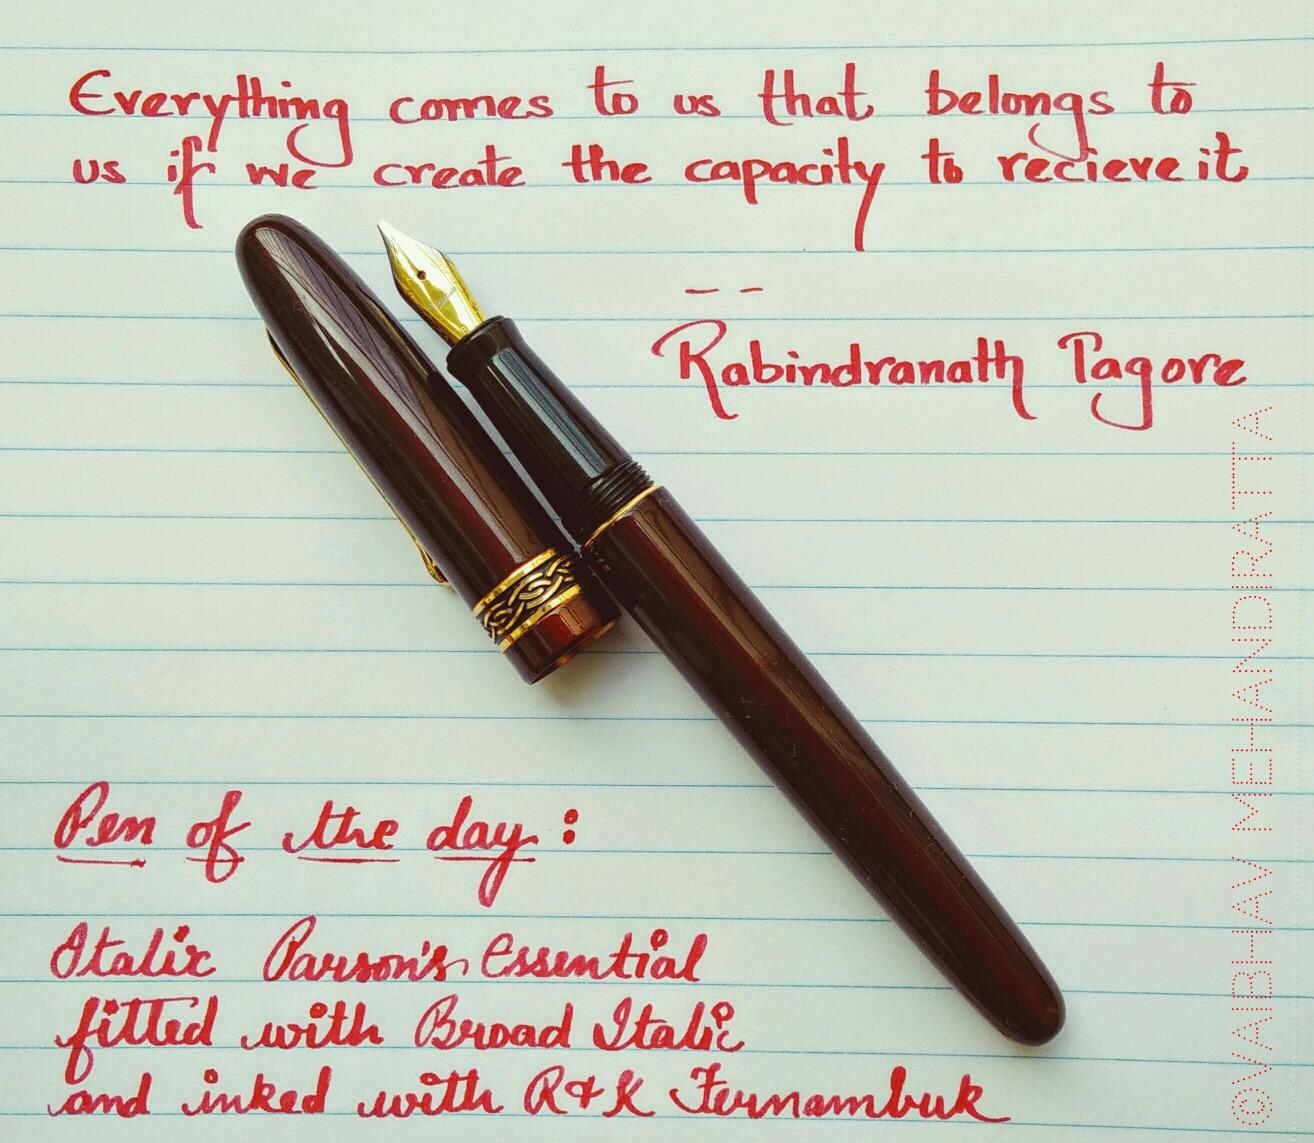 Everything comes to us that belongs to
us if we create the capacity to recieve it
--
Rabindranath Tagore
Pen of the day:
Italic Parson's Essential
fitted with Broad Italic
and inked with R&K Fernambuk
©VAIBHAV MEHANDIRATTA